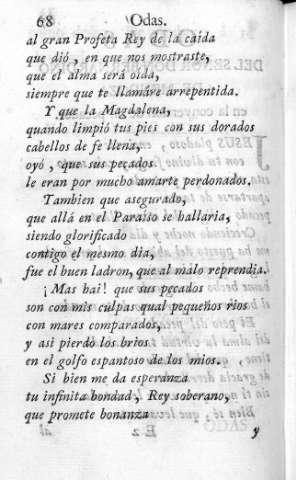 68 Odas.
al gran Profeta Rey de la caida
que dió, en que nos mostraste,
que el alma será oida,
siempre que te llamáre arrepentida.
Y que la Magdalena,
quando limpió tus pies con sus dorados
cabellos de fe llena,
oyó, que sus pecados
le eran por mucho amarte perdonados.
Tambien que asegurado,
que allá en el Paraiso se hallaria,
siendo glorificado
contigo el mesmo dia,
fue el buen ladron, que al malo reprendia.
¡Mas hai! que sus pecados
son con mis culpas qual pequeños rios
con mares comparados,
y asi pierdo los brios
en el golfo espantoso de los mios.
Si bien me da esperanza
tu infinita bondad, Rey soberano,
que promete bonanza
y